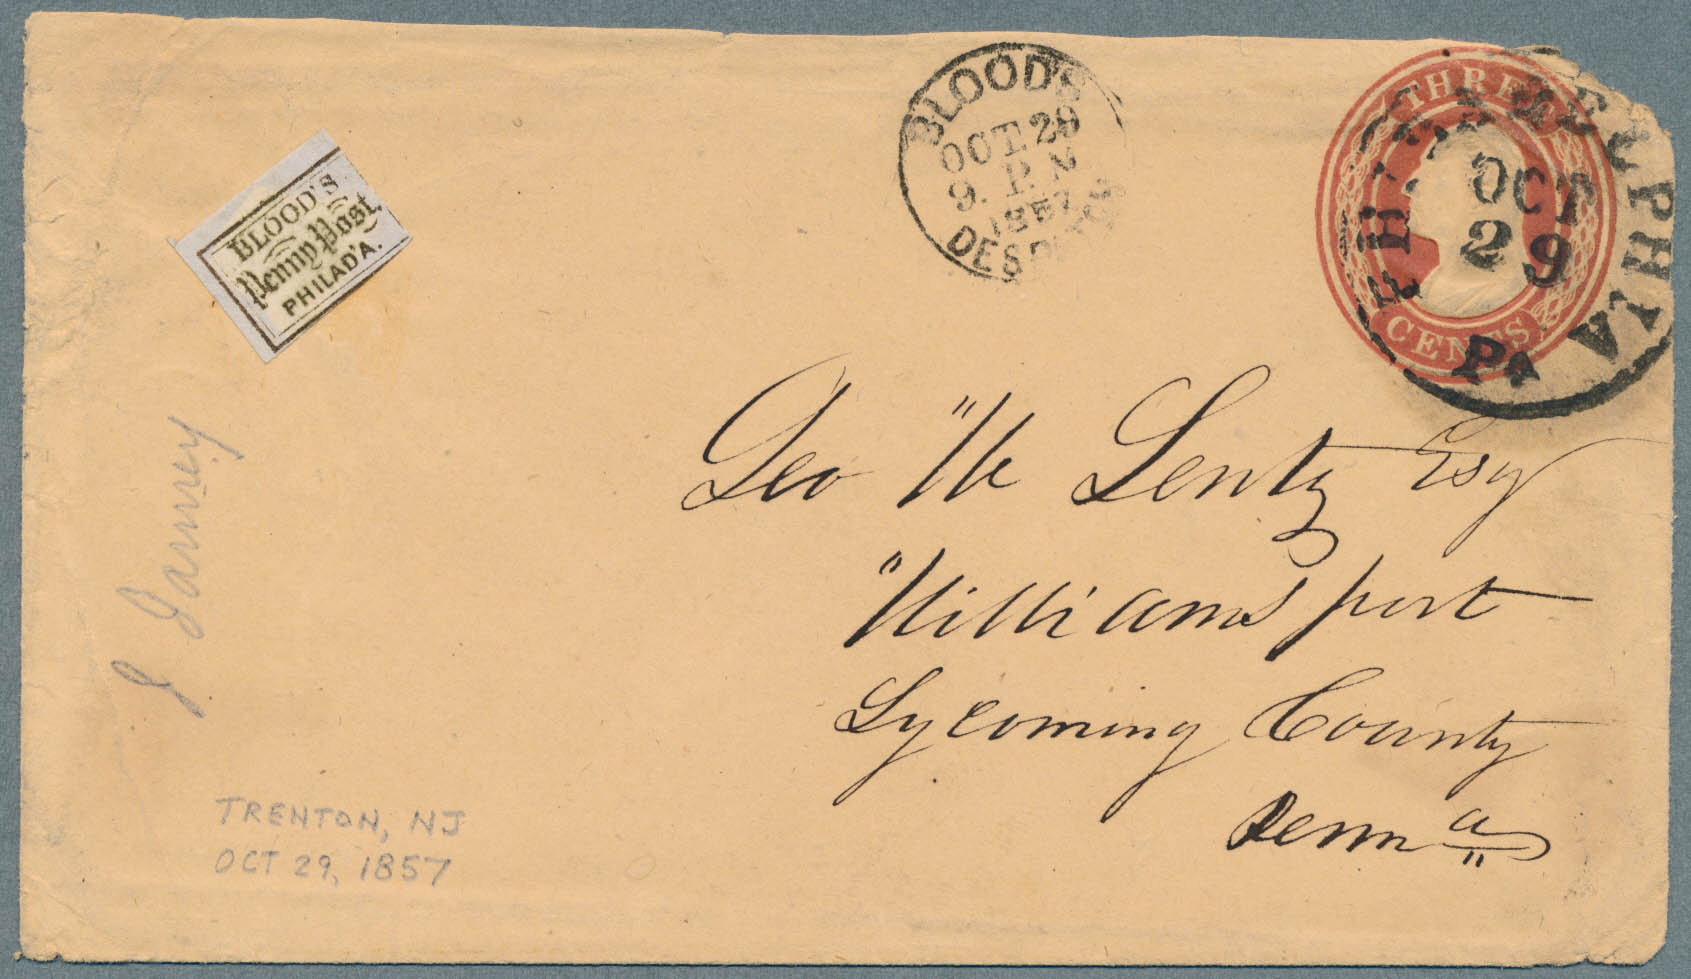 BLOOD'S
Penny Post,
PHILAD'A.
BLOOD'S
OCT. 29
9. P. M
1857
DESPATCH
THREE
CENTS
PHILADELPHIA
OCT
29
PA
Geo W Lentz Esq
Williamsport
Lycoming County
Penna
J Janney
TRENTON, NJ
OCT 29, 1857